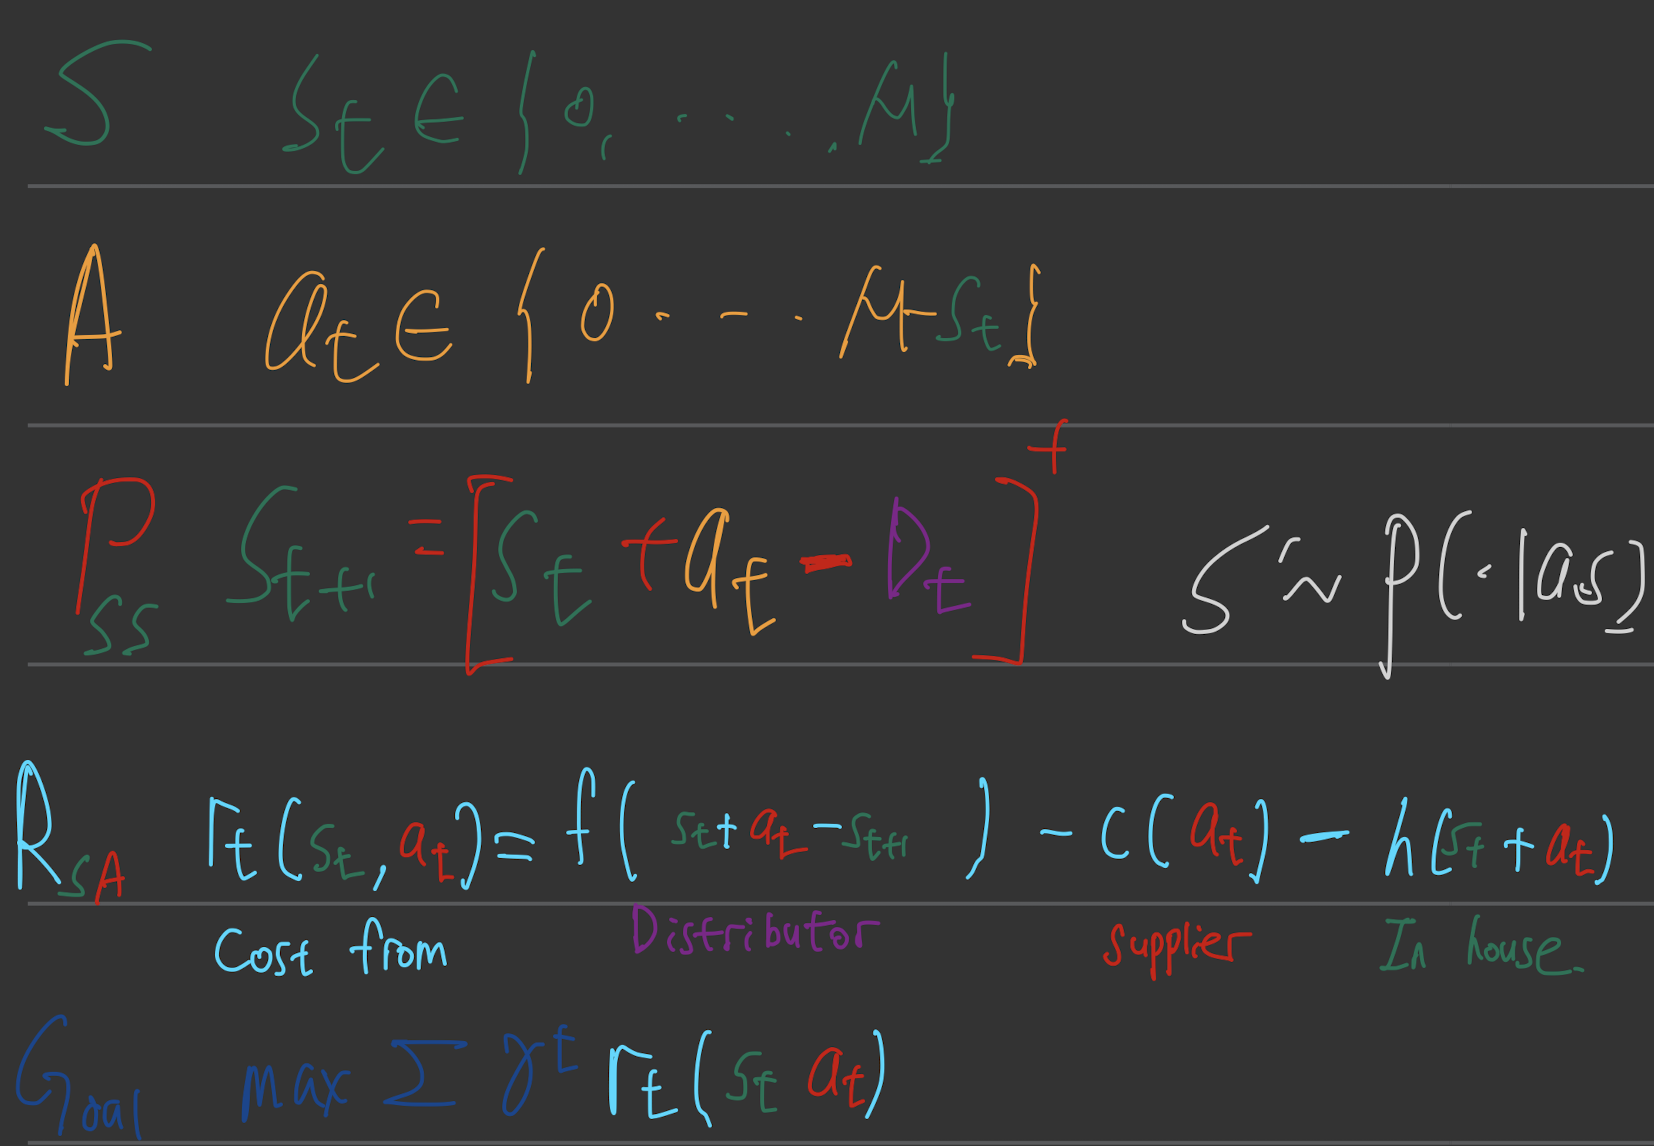 S S_t ∈ {0, ....., M}
A a_t ∈ {0 .... M-S_t}
P_SS S_t+1 = [S_t + a_t - D_t]^+ S' ~ P(·|a s)
R_SA r_t(S_t, a_t) = f(S_t + a_t - S_t+1) - c(a_t) - h(S_t + a_t)
Cost from Distributor Supplier In house.
Goal max Σ γ^t r_t(S_t a_t)